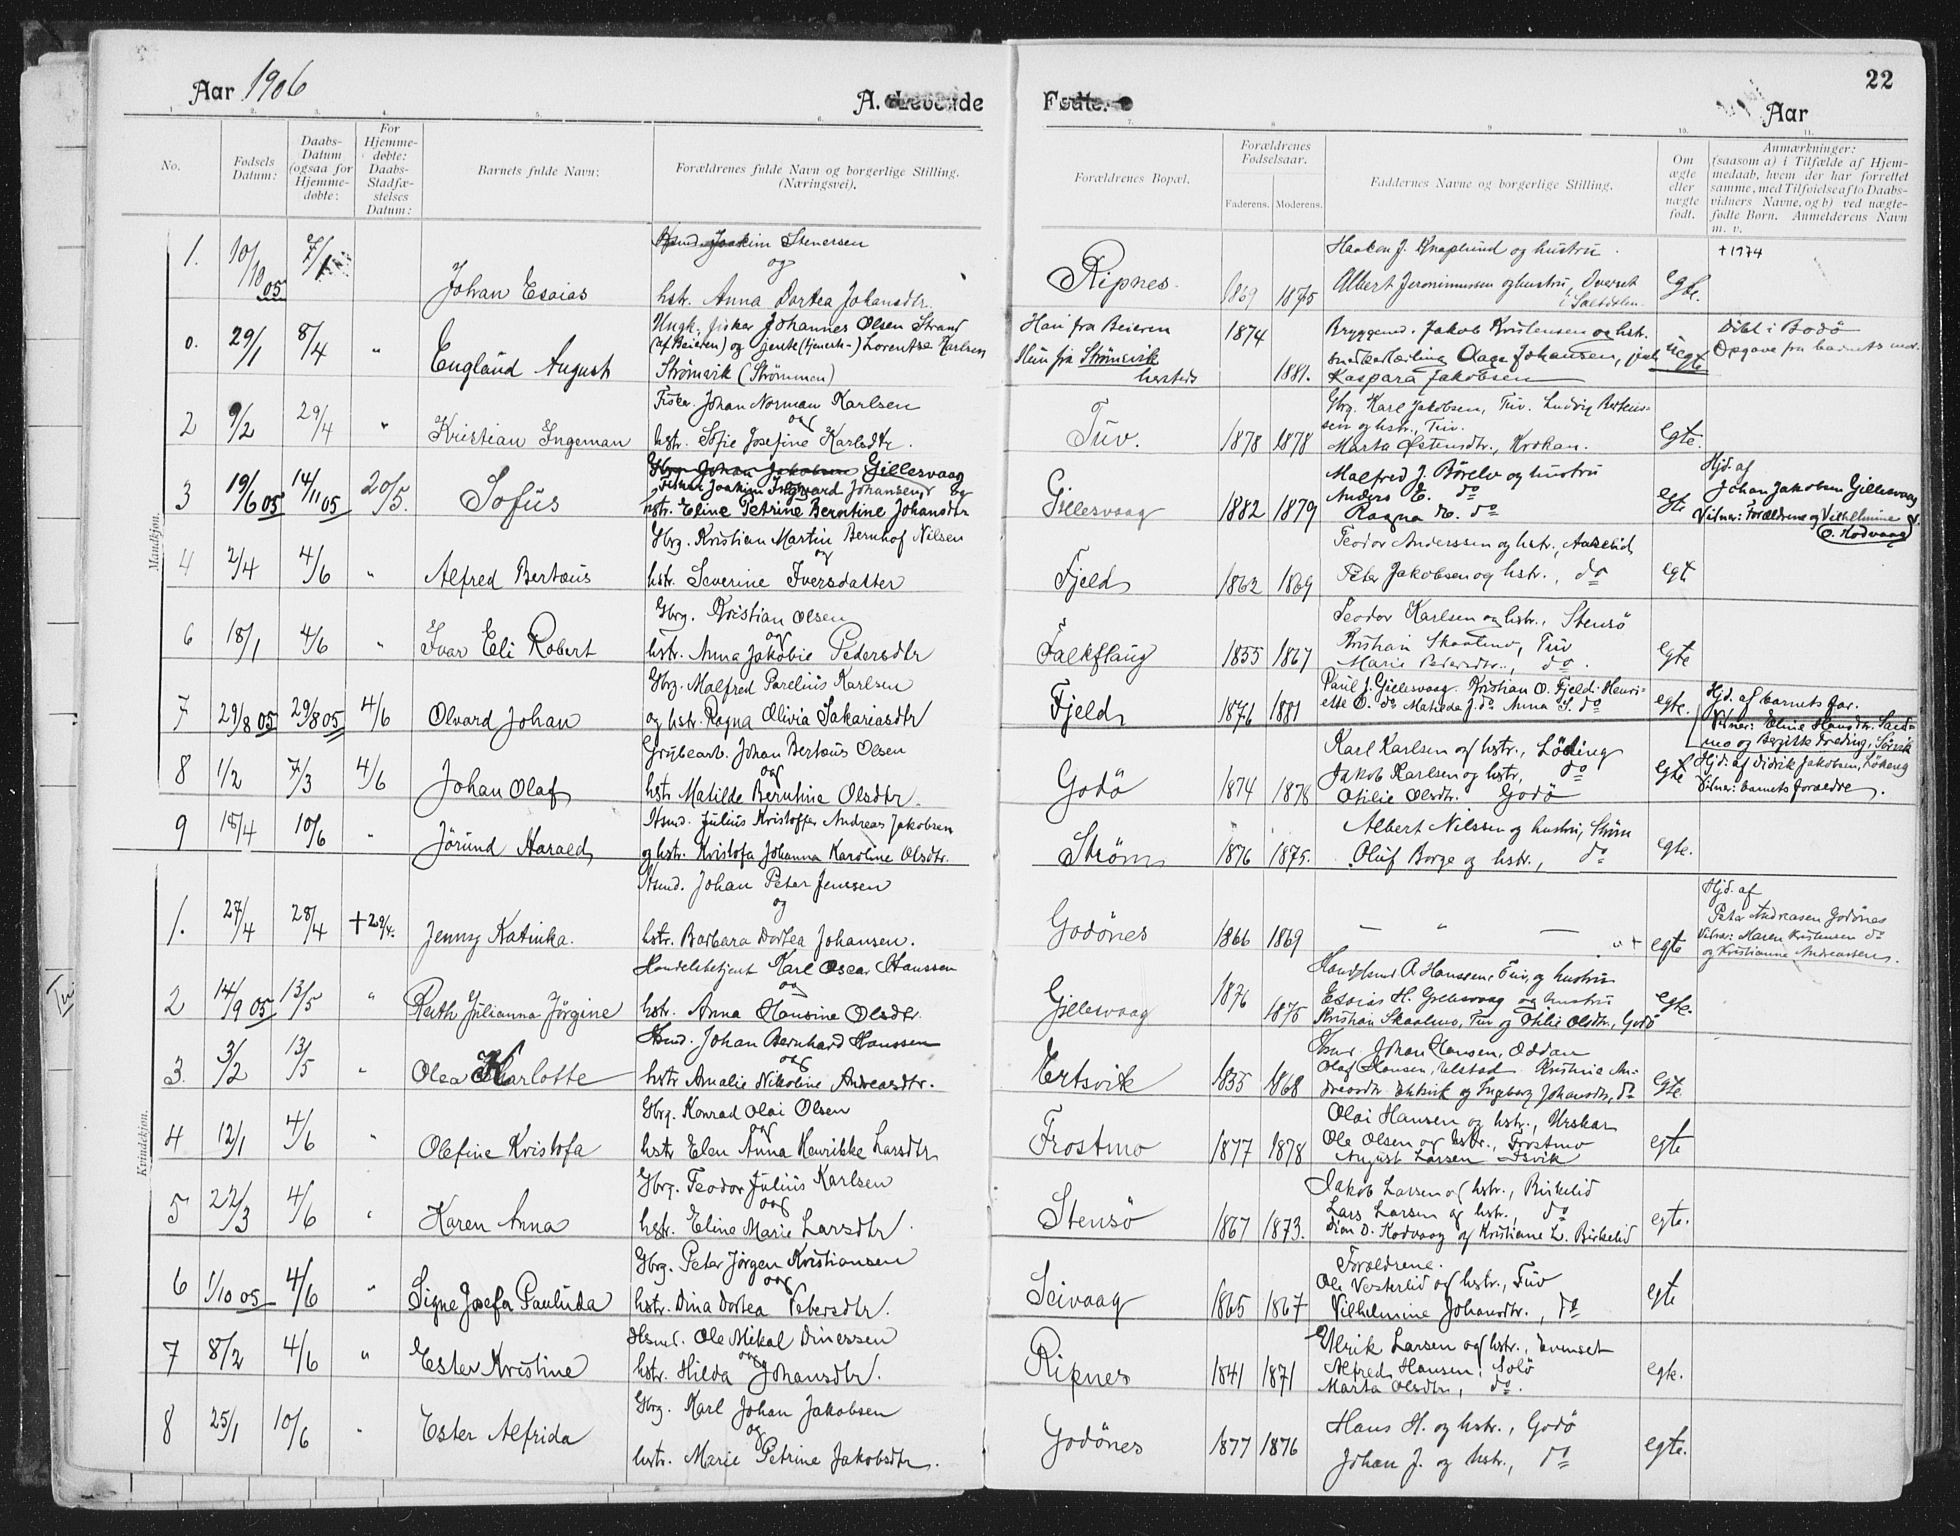 Aar 1906
A. Levende Fødte.
Aar
22
1. 2. 3. 4. 5. 6. 7. 8. 9. 10. 11.
No.
Fødsels Datum:
Daabs-Datum (ogsaa for Hjemme-døbte:
For Hjemme-døbte: Daabs-Stadfæ-stelses Datum:
Barnets fulde Navn:
Forældrenes fulde Navn og borgerlige Stilling. (Næringsvei).
Forældrenes Bopæl.
Forældrenes Fødselsaar.
Faderens. Moderens.
Faddernes Navne og borgerlige Stilling.
Om ægte eller uægte født.
Anmærkninger: (saasom a) i Tilfælde af Hjem-medaab, hvem der har forrettet samme, med Tilføielse af to Daabs-vidners Navne, og b) ved uægte-fødte Børn. Anmelderens Navn m. v.
Mandkjøn.
1. 10/10 05 7/1 Johan Esaias
Hsmd. Joakim Stenersen
og
hstr. Anna Dortea Johansdtr.
Ripnes. 1869 1875
Haakon J. Knaplund og hustru.
Albert Jeronimussen og hustru, Overset
i Saltdalen
egte.
+ 1974
0. 29/1 8/4 " Engländ August
Ungk. fisker Johannes Olsen Strand
(af Beieren) og jente (tjeneste-) Lorentse Karlsen
Strømvik (Strømmen)
Han fra Beieren
Hun fra Strømvik
hersteds
1874 1881.
Bryggemd. Jakob Kristensen og hstr.
Aage Johansen,
Kaspara Jakobsen
uegte
Døbt i Bodø
Opgave fra barnets mor.
2 9/2 29/4 " Kristian Ingeman
Fisker. Johan Norman Karlsen
og
hstr. Sofie Josefine Karlsdtr.
Tuv. 1878 1878
Gbrg. Karl Jakobsen, Tuv. Ludvig Bertens-
sen og hstr., Tuv.
Marta Østensdtr., Krokan.
egte.
3 19/6 05 14/11 05 20/5. Sofus
Gbrg. Johan Jakobsen Gillesvaag
Fisker Joakim Ingvard Johansen, og
hstr. Eline Petrine Berntine Johansdtr
Gillesvaag 1882 1879
Malfred J. Børelv og hustru
Anders E. do
Ragna K. do
egte
Hjd. af
Johan Jakobsen Gillesvaag
Vitner: Forældrene og Vilhelmine
O. Kodvaag
4 2/4 4/6 " Alfred Bertæus
Gbrg. Kristian Martin Bernhof Nilsen
og
hstr. Severine Iversdatter
Fjeld 1862 1869
Teodor Anderssen og hstr., Auselid,
Peter Jakobsen og hstr., do
egt.
6 18/1 4/6 " Ivar Eli Robert
Gbrg. Kristian Olsen
og
hstr. Anna Jakobie Pedersdtr
Falkflaug 1855 1867
Teodor Karlsen og hstr., Stensø
Kristian Skaalmo, Tuv
Marie Pedersdtr., do.
egte
7 29/8 05 29/8 05 4/6 Olvard Johan
Gbrg. Malfred Parelius Karlsen
og hstr. Ragna Olivia Sakariasdtr
Fjeld 1876 1881
Paul J. Gillesvaag. Kristian O. Fjeld. Henri-
ette O. do Matilda J. do Anna S. do
egte.
Hjd. af barnets far.
Vitner: Eline Hansdtr.
mo og Bergitte Freding, Sørvik
8 1/2 7/3 4/6 Johan Olaf
Grubearb. Johan Bertæus Olsen
og
hstr Matilde Berntine Olsdtr.
Godø 1874 1878
Karl Karlsen og hstr., Løding
Jakob Karlsen og hstr., do
Otilie Olsdtr. Godø
egte
Hjd. af Didrik Jakobsen, Løkeng
Vitner: barnets foræeldre.
9 18/4 10/6 " Jørund Harald
Hsmd. Julius Kristoffer Andreas Jakobsen
og hstr. Kristofa Johanna Karoline Olsdtr.
Strøm 1876 1875.
Albert Nilssen og hustru, Strøm
Oluf Borge og hstr., do
egte.
Kvindekjøn.
1. 27/4 28/4 + 29/4. Jenny Katinka.
Hsmd. Johan Peter Jenssen
og
hstr. Barbara Dortea Johansen.
Godønes 1866 1869
— " —
egte
Hjd. af
Peter Andreasen Godønes
Vitner: Maren Kristensen do
og Kristianne Andreassen.
2 14/9 05 13/5 " Ruth Julianna Jørgine
Handelsbetjent Karl Oscar Hanssen
og
hstr. Anna Hansine Olsdtr.
Gillesvaag 1876 1875
Handelsmd R. Hanssen, Tuv, og hustru
Esaias H. Gillesvaag og hustru
Kristian Skaalmo, Tuv og Otilie Olsdtr., Godø
egte.
3. 3/2 13/5 " Olea Karlotte
Hsmd. Johan Bernhard Hanssen
og
hstr Amalie Nikoline Andreasdtr.
Ertsvik 1855 1868
Hsmd. Johan Hansen, Oddan
Olaf Hansen, Ulstad Kristina An-
dreasdtr. Ertsvik og Ingeborg Johansdtr., do
egte.
4 12/1 4/6 " Olefine Kristofa
Gbrg. Konrad Olai Olsen
og
hstr Elen Anna Henrikke Larsdtr
Frostmo 1877 1878
Olai Hansen og hstr., Urskar
Ole Olsen og hstr., Frostmo
August Larsen Isvik
egte
5 22/3 4/6 " Karen Anna
Gbrg. Teodor Julius Karlsen
og
hstr. Eline Marie Larsdtr.
Stensø 1867 1873.
Jakob Larsen og hstr., Birkelid
Lars Larsen og hstr., do
D. Kodvaag og Kristiane L. Birkelid
egte.
6 1/10 05 4/6 " Signe Josefa Paulinda
Gbrg. Peter Jørgen Kristiansen
og
hstr. Dina Dortea Pedersdtr.
Seivaag 1865 1867
Forældrene.
Ole Vesterlid og hstr., Tuv
Vilhelmine Johansdtr., do
egte
7 8/2 4/6 " Ester Kristine
Hsmd. Ole Mikal Dinessen
og
hstr. Hilda Johansdtr.
Ripnes 1841 1871
Ulrik Larsen og hstr., Evenset
Alfred Hansen, Solø
Marta Olsdtr., do.
egte.
8 25/1 10/6 " Ester Alfrida
Gbrg. Karl Johan Jakobsen
og
hstr. Marie Petrine Jakobsdtr.
Godønes 1877 1876
Hans H. og hstr., Godø
Johan J. og hstr., do
egte.